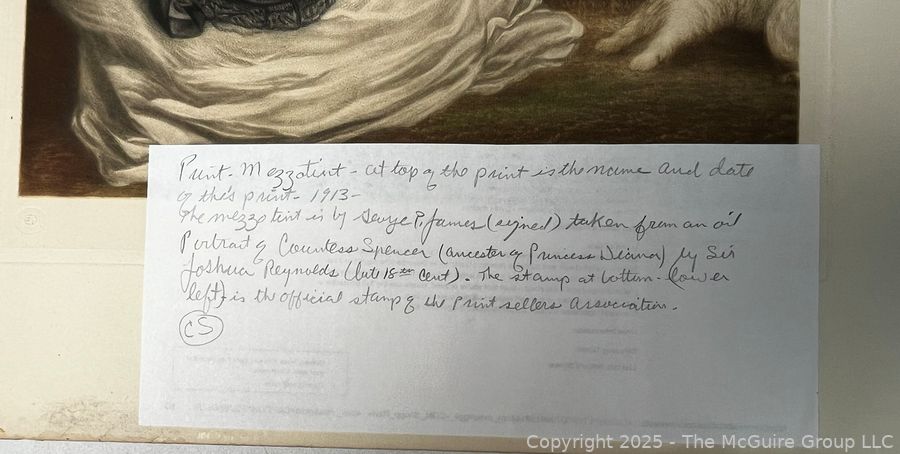 Print - Mezzotint - at top of the print is the name and date
of this print - 1913 -
The mezzotint is by George P. James (signed) taken from an oil
Portrait of Countess Spencer (ancester of Princess Diana) by Sir
Joshua Reynolds (late 18th Cent). The stamp at bottom - lower
left, is the official stamp of the Print sellers Association.
CS
Copyright 2025 - The McGuire Group LLC